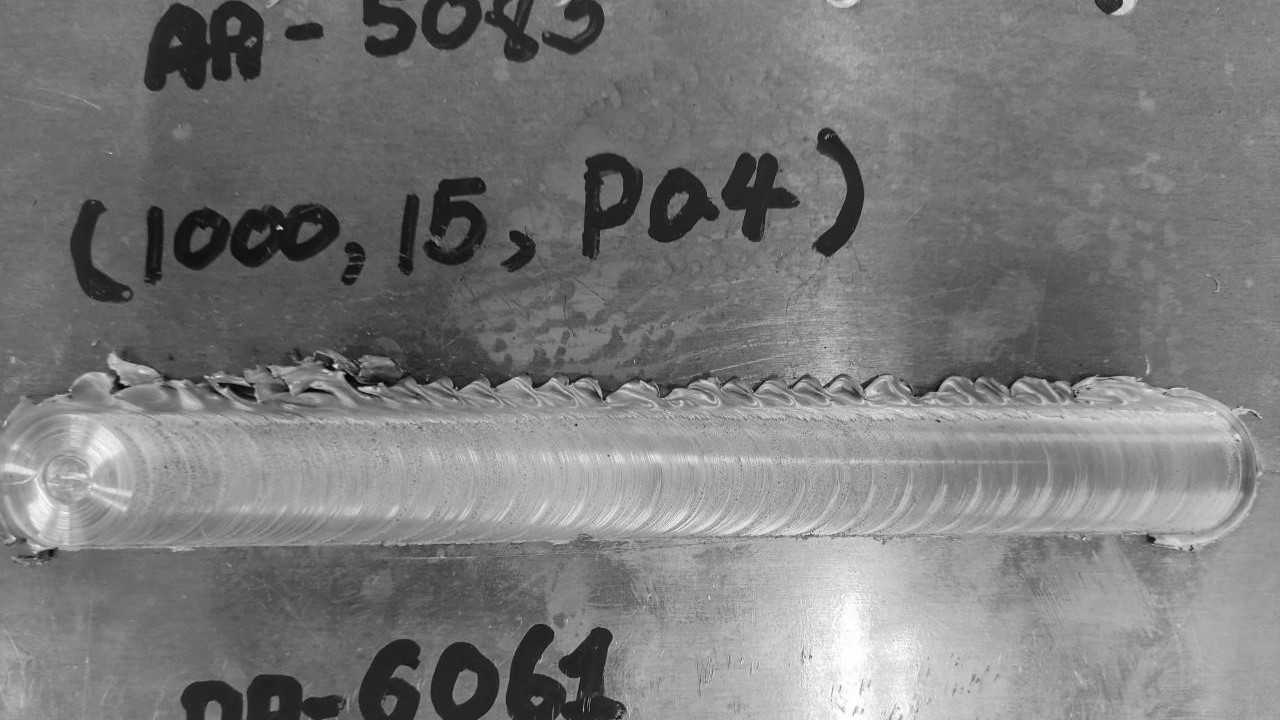 AA-5083
(1000, 15, Pa4)
AA-6061